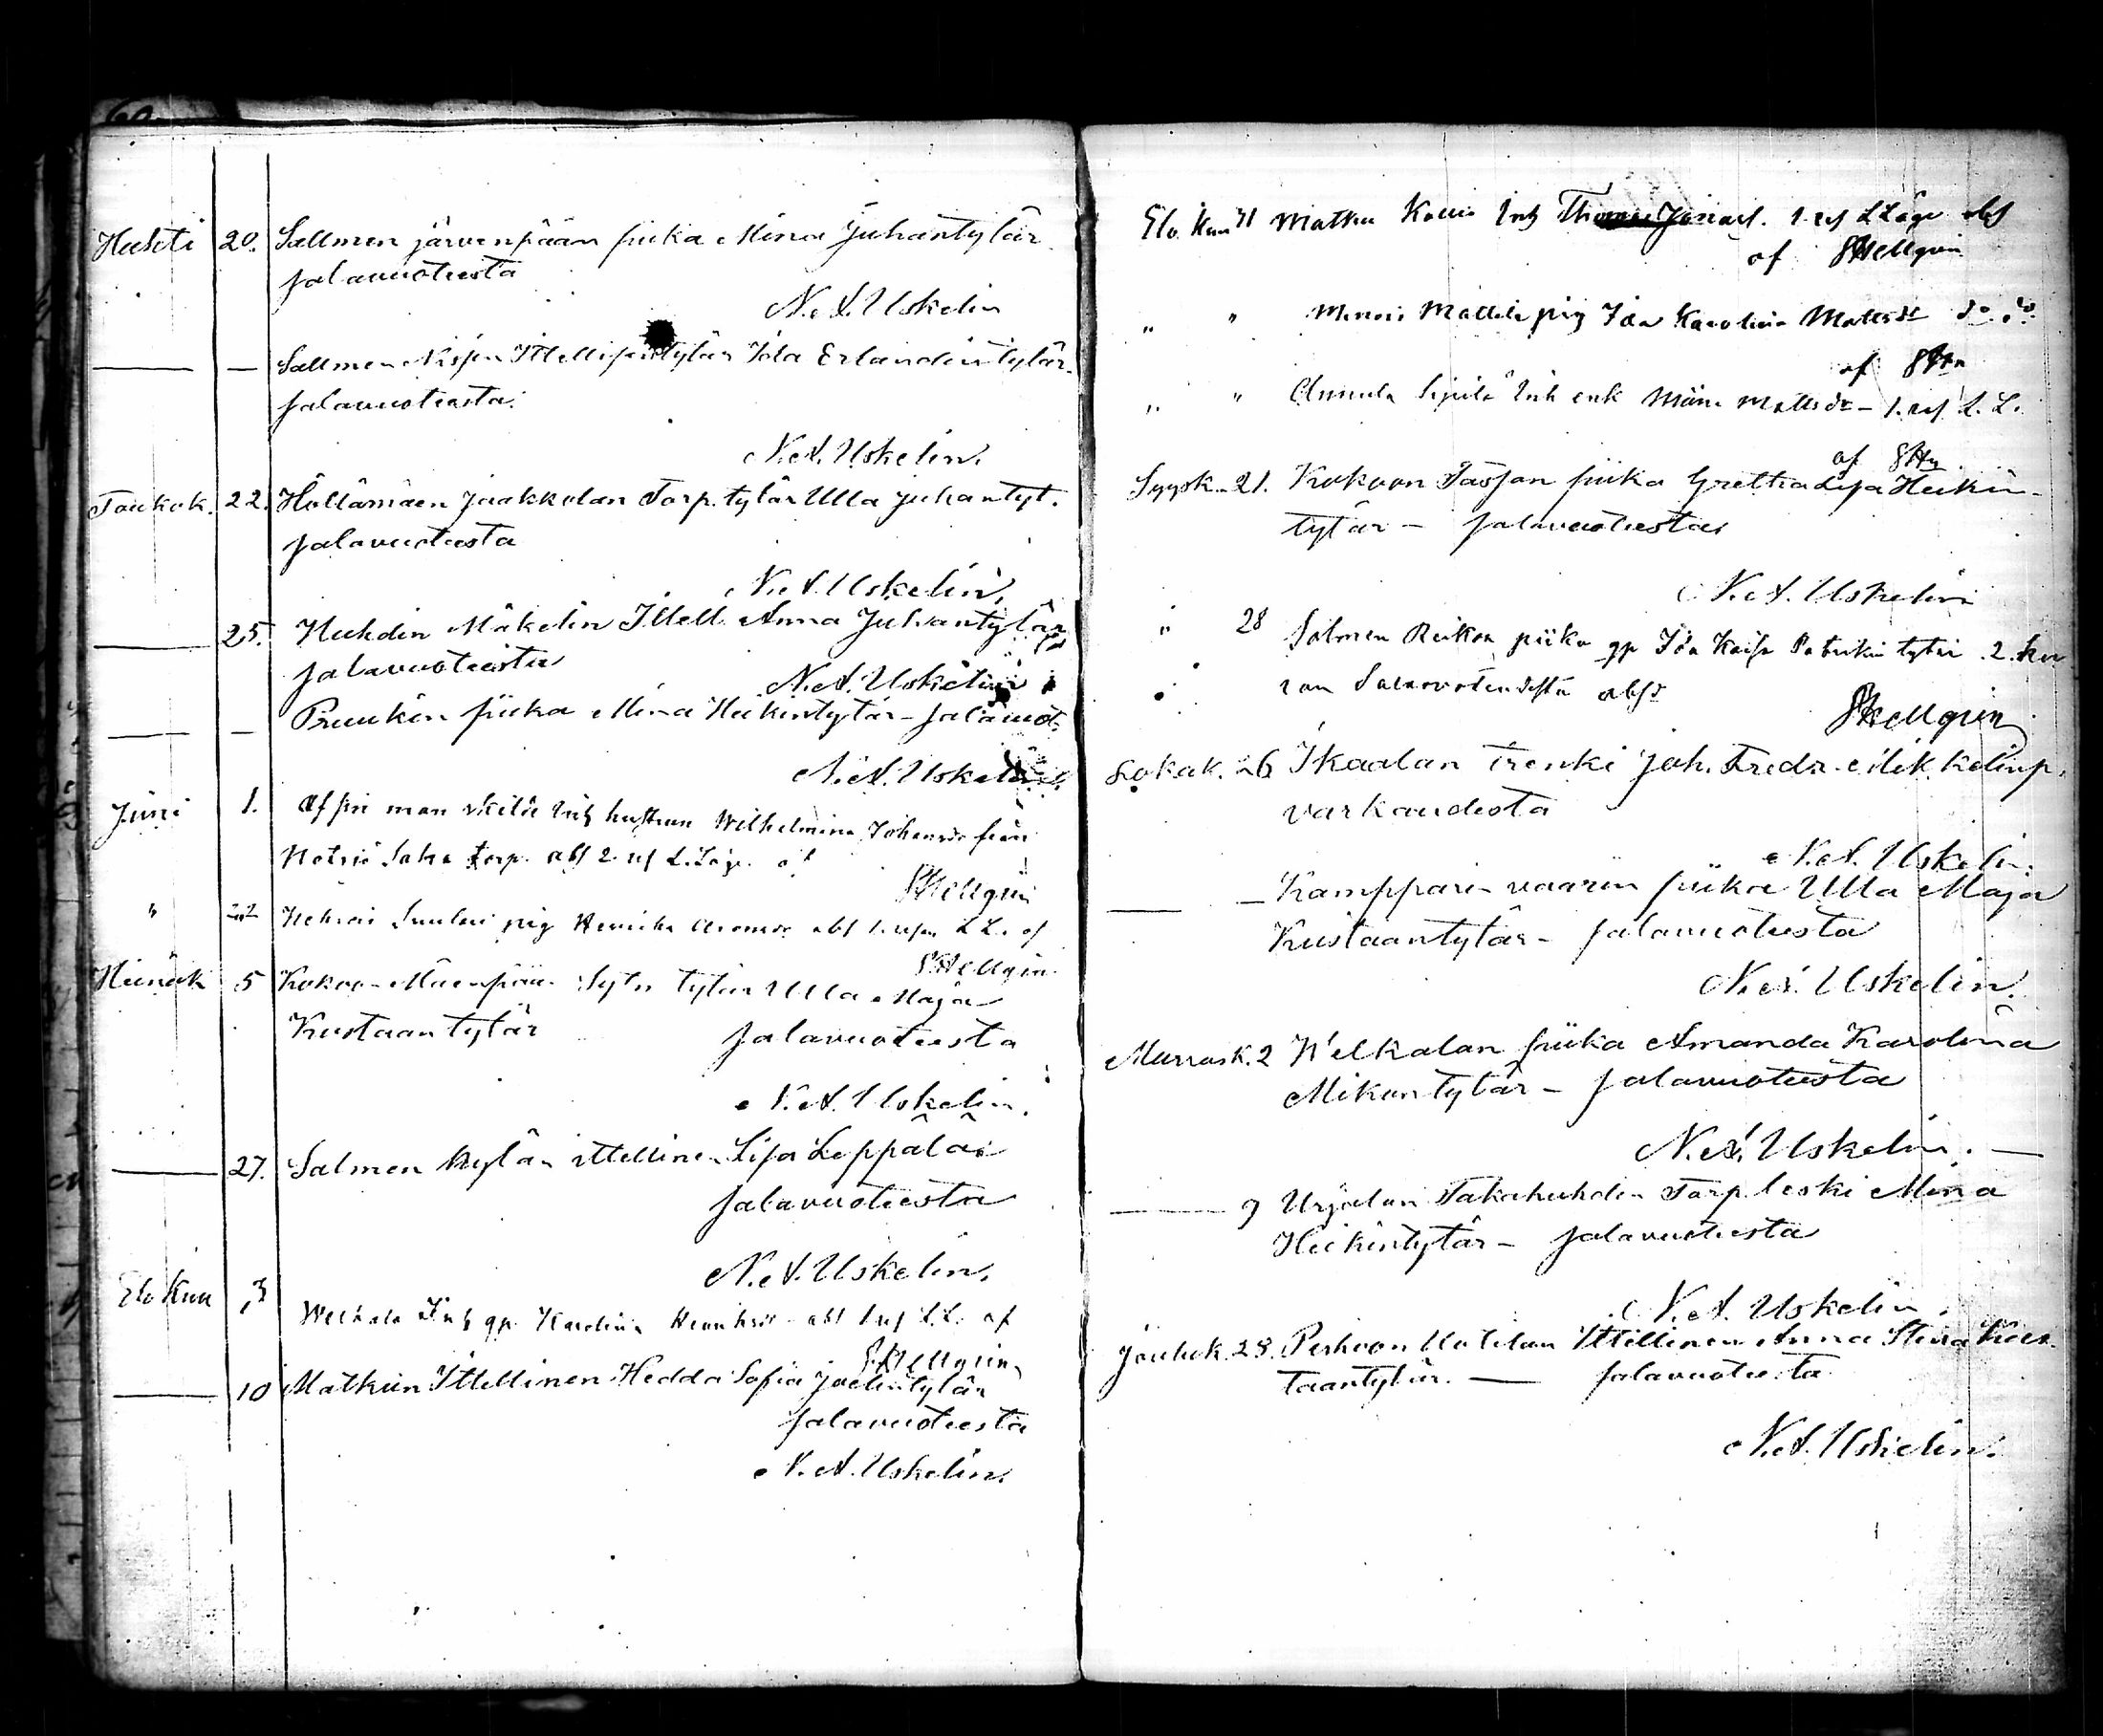 60
Huhti 20. Sallmen järvenpään piika Mina Juhantytär
salavuoteesta
N. A. Uskelin
— — Sallmen Nissen Ittellisentytär Ida Erlandintytär
salavuoteesta.
N. A. Uskelin.
Toukok. 22. Hällämäen Jaakkolan Torp. tytär Ulla Juhantyt.
salavuoteesta
N. A. Uskelin.
— 25. Huhdin Mäkelin Ittell. Anna Juhantytär
salavuoteesta N. A. Uskelin
— — Pruukin piika Mina Heikintytär – salavuot.
N. A. Uskelin.
Juni 1. Af sin man skild Inh hustrun Wilhelmina Johansdr från
torp. abs 2 L. Läge. af
SHellgrén
" 22 pig Henrika abs 1. L. L. af
SHellgrén
Heinäk 5 Kokoo-Mäenpään tytär Ulla Maja
Kustaantytär salavuoteesta
N. A. Uskelin.
— 27. Salmen kylän ittellinen Lisa Leppälä
salavuoteesta
N. A. Uskelin.
Elo Kuu 3 Inh gp Karolina Henriksdr abs 1 L. L. af
SHellgrén
— 10 Matkun Ittellinen Hedda Sofia Joelintytär
salavuoteesta
N. A. Uskelin.
Elo Kuu 31 Matku Inh 1. L Läge abs
af SHellgrén
" " Mattila pig Ida Karolina Mattsdr do do
af SHn
" " Annula Sipilä Inh enk Mattsdr – 1. L. L.
af SHn
Syysk. 21. Kokoon piika Gretha Lisa Heikin-
tytär – salavuoteesta
N. A. Uskelin
" 28 Salmen piika gp Ida Kaisa Patrikin tytär 2. ker
ran Salavuoteudesta abs
SHellgrén
Lokak. 26 Ikaalan trenki Joh. Fredr. Mikkelinp.
varkaudesta
N. A. Uskelin.
— — Kamppari-vaarin piika Ulla Maja
Kustaantytär – salavuoteesta
N. A. Uskelin.
Marrask. 2 Welkalan piika Amanda Karolina
Mikontytär – salavuoteesta
N. A. Uskelin. —
— 9 Urjalan Takahuhdin Torp leski Mina
Heikintytär – salavuoteesta
N. A. Uskelin.
Jouluk. 28. Peshoon Uotilan Ittellinen Anna Stina Kus-
taantytär. — salavuoteesta
N. A. Uskelin.